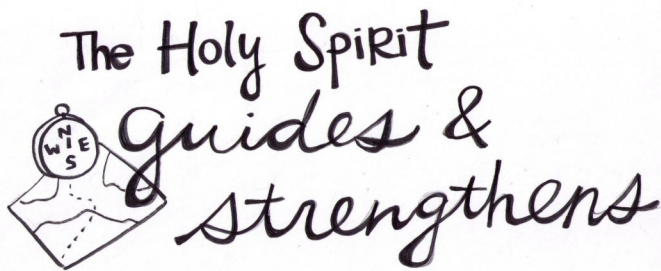 The Holy Spirit
guides &
strengthens
N
W E
S